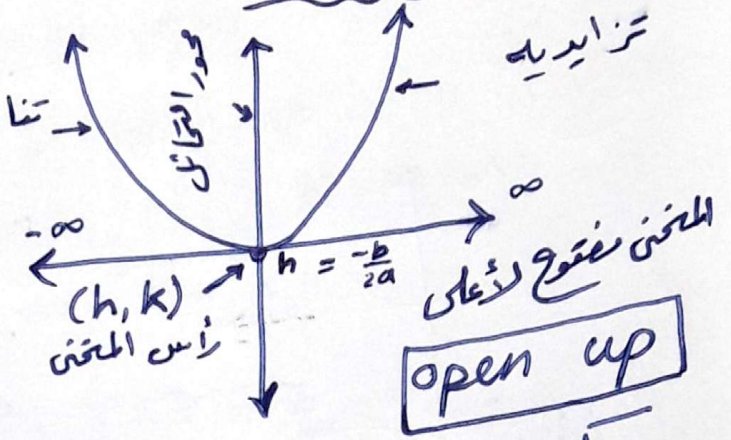 تزايديه
تنا
محور التماثل
-∞
∞
h = -b/2a
(h, k)
رأس المنحنى
المنحنى مفتوح لأعلى
open up